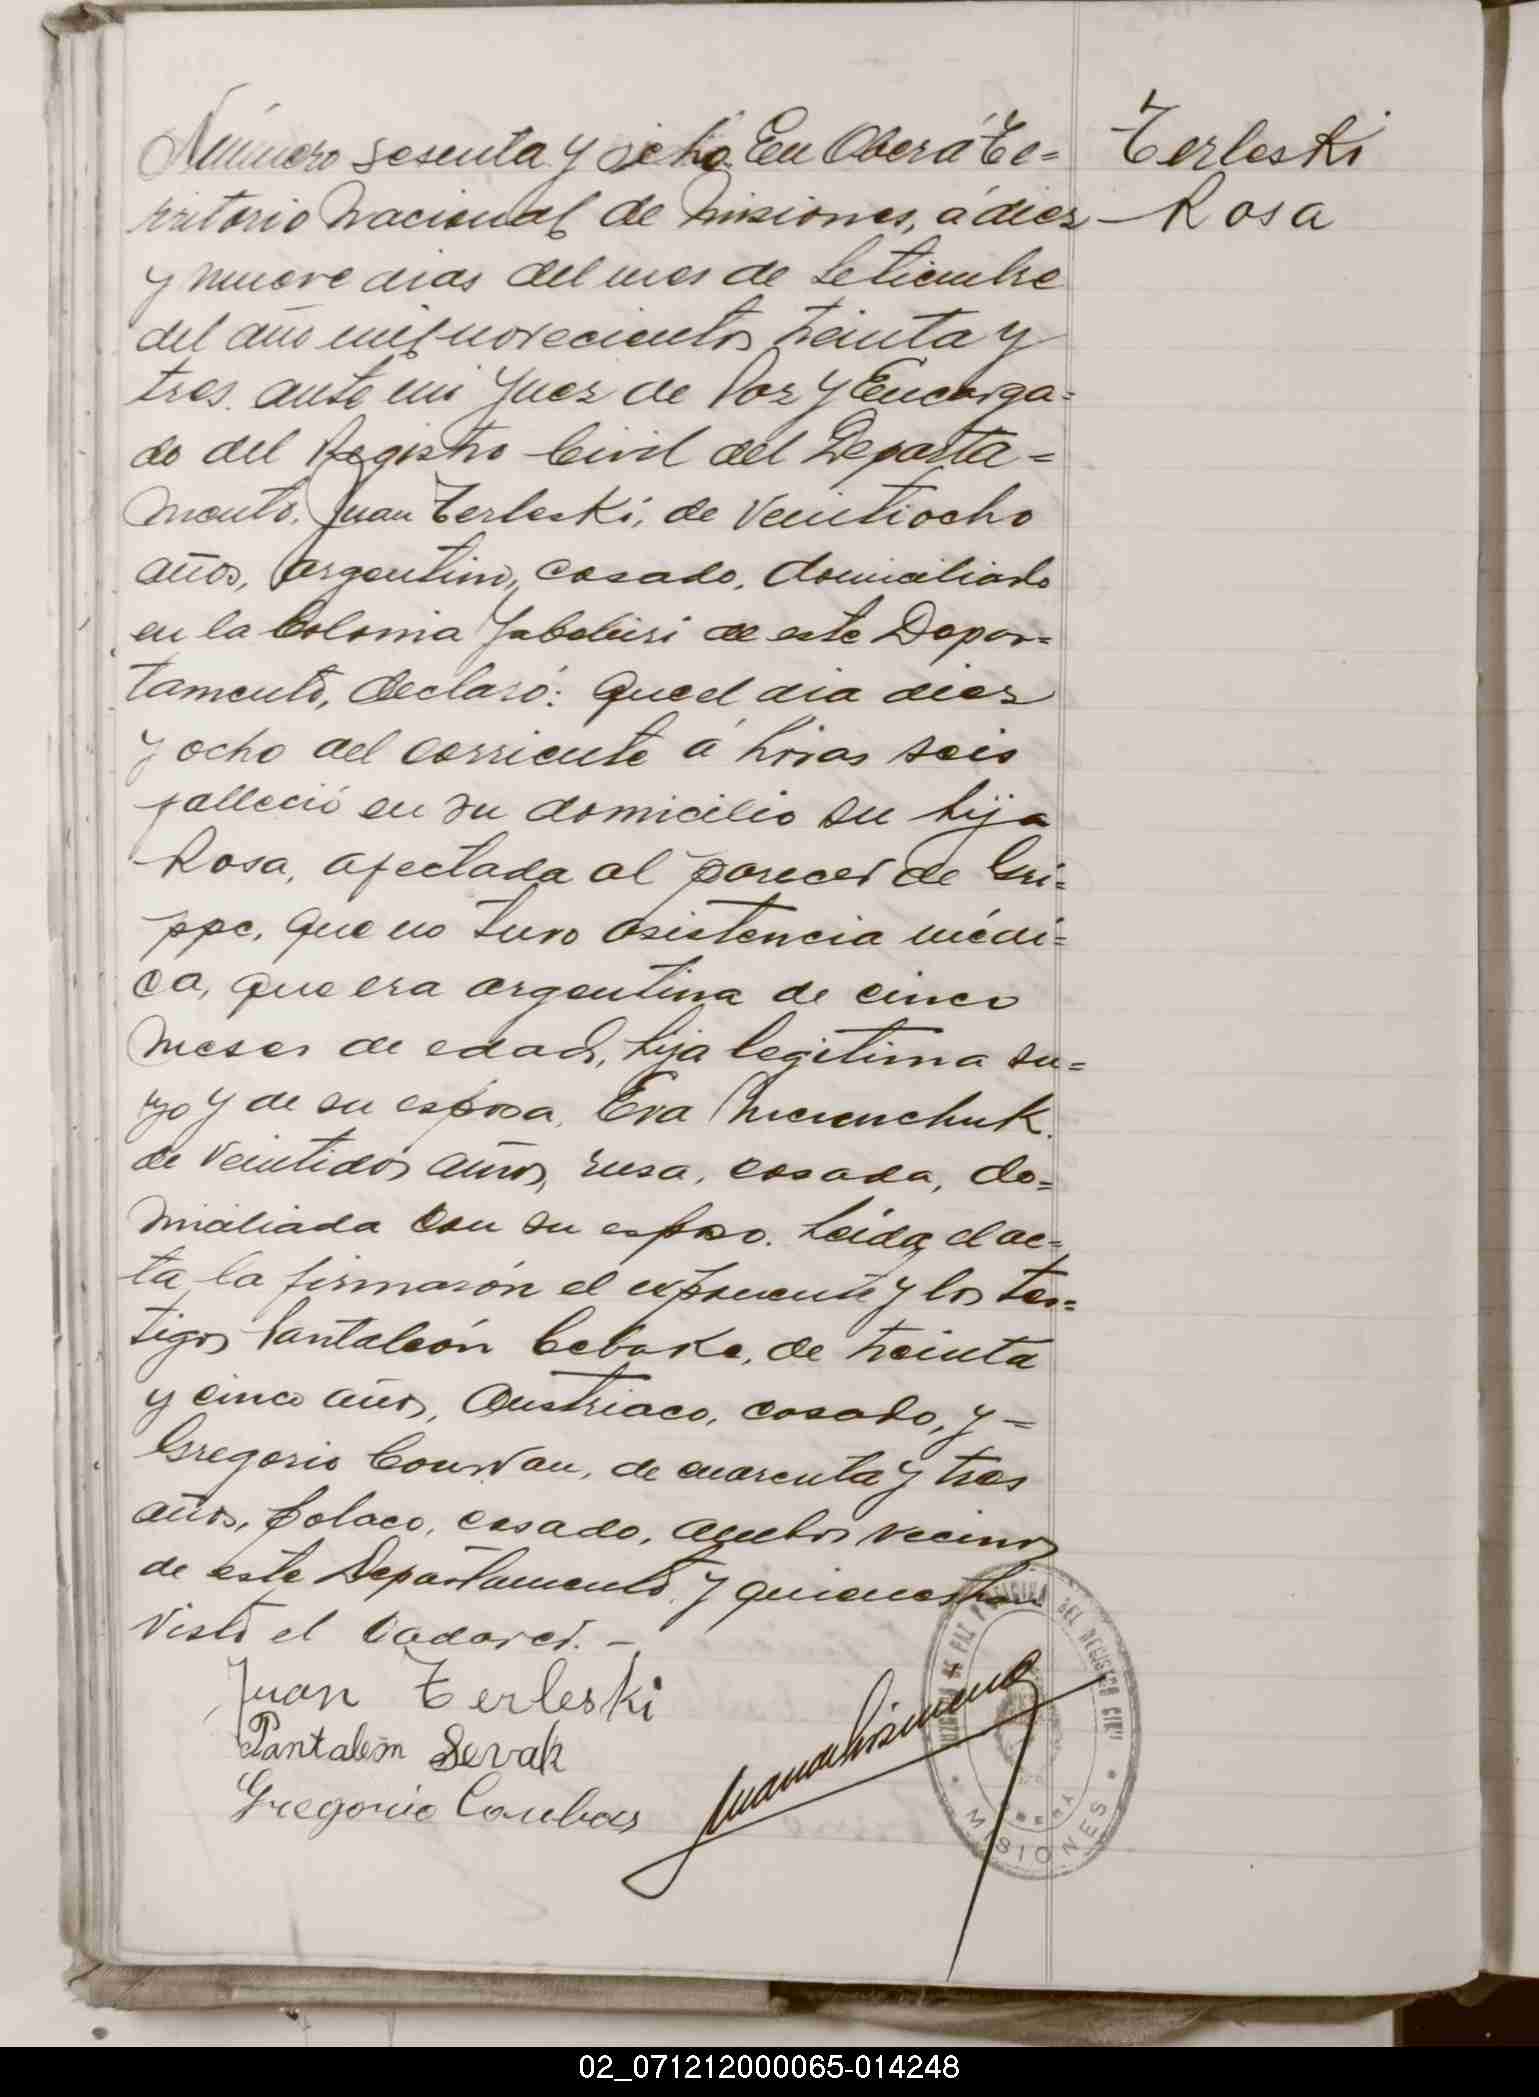 Terleski
Rosa
Número sesenta y ocho. En Oberá Te=
rritorio Nacional de Misiones, á diez
y nueve dias del mes de Setiembre
del año mil novecientos treinta y
tres. ante mi Juez de Paz y Encarga=
do del Registro Civil del Departa=
mento, Juan Terleski, de veintiocho
años, argentino, casado, domiciliado
en la Colonia Yabebiri de este Depar=
tamento, declaró: Que el dia diez
y ocho del corriente á horas seis
falleció en su domicilio su hija
Rosa, afectada al parecer de Gri=
ppe, que no tuvo asistencia médi=
ca, que era argentina de cinco
meses de edad, hija legitima su=
ya y de su esposa, Eva
de veintidos años, rusa, casada, do=
miciliada con su esposo. Leida el ac=
ta la firmarón el exponente y los tes=
tigos Pantaleón Cebake, de treinta
y cinco años, Austriaco, casado, y =
Gregorio de cuarenta y tres
años, polaco, casado, ambos vecinos
de este Departamento, y quienes han
visto el cadaver. -
Juan Terleski
Pantaleón Sevak
Gregorio
DEL REGISTRO CIVIL
OBERÁ
MISIONES
02_071212000065-014248